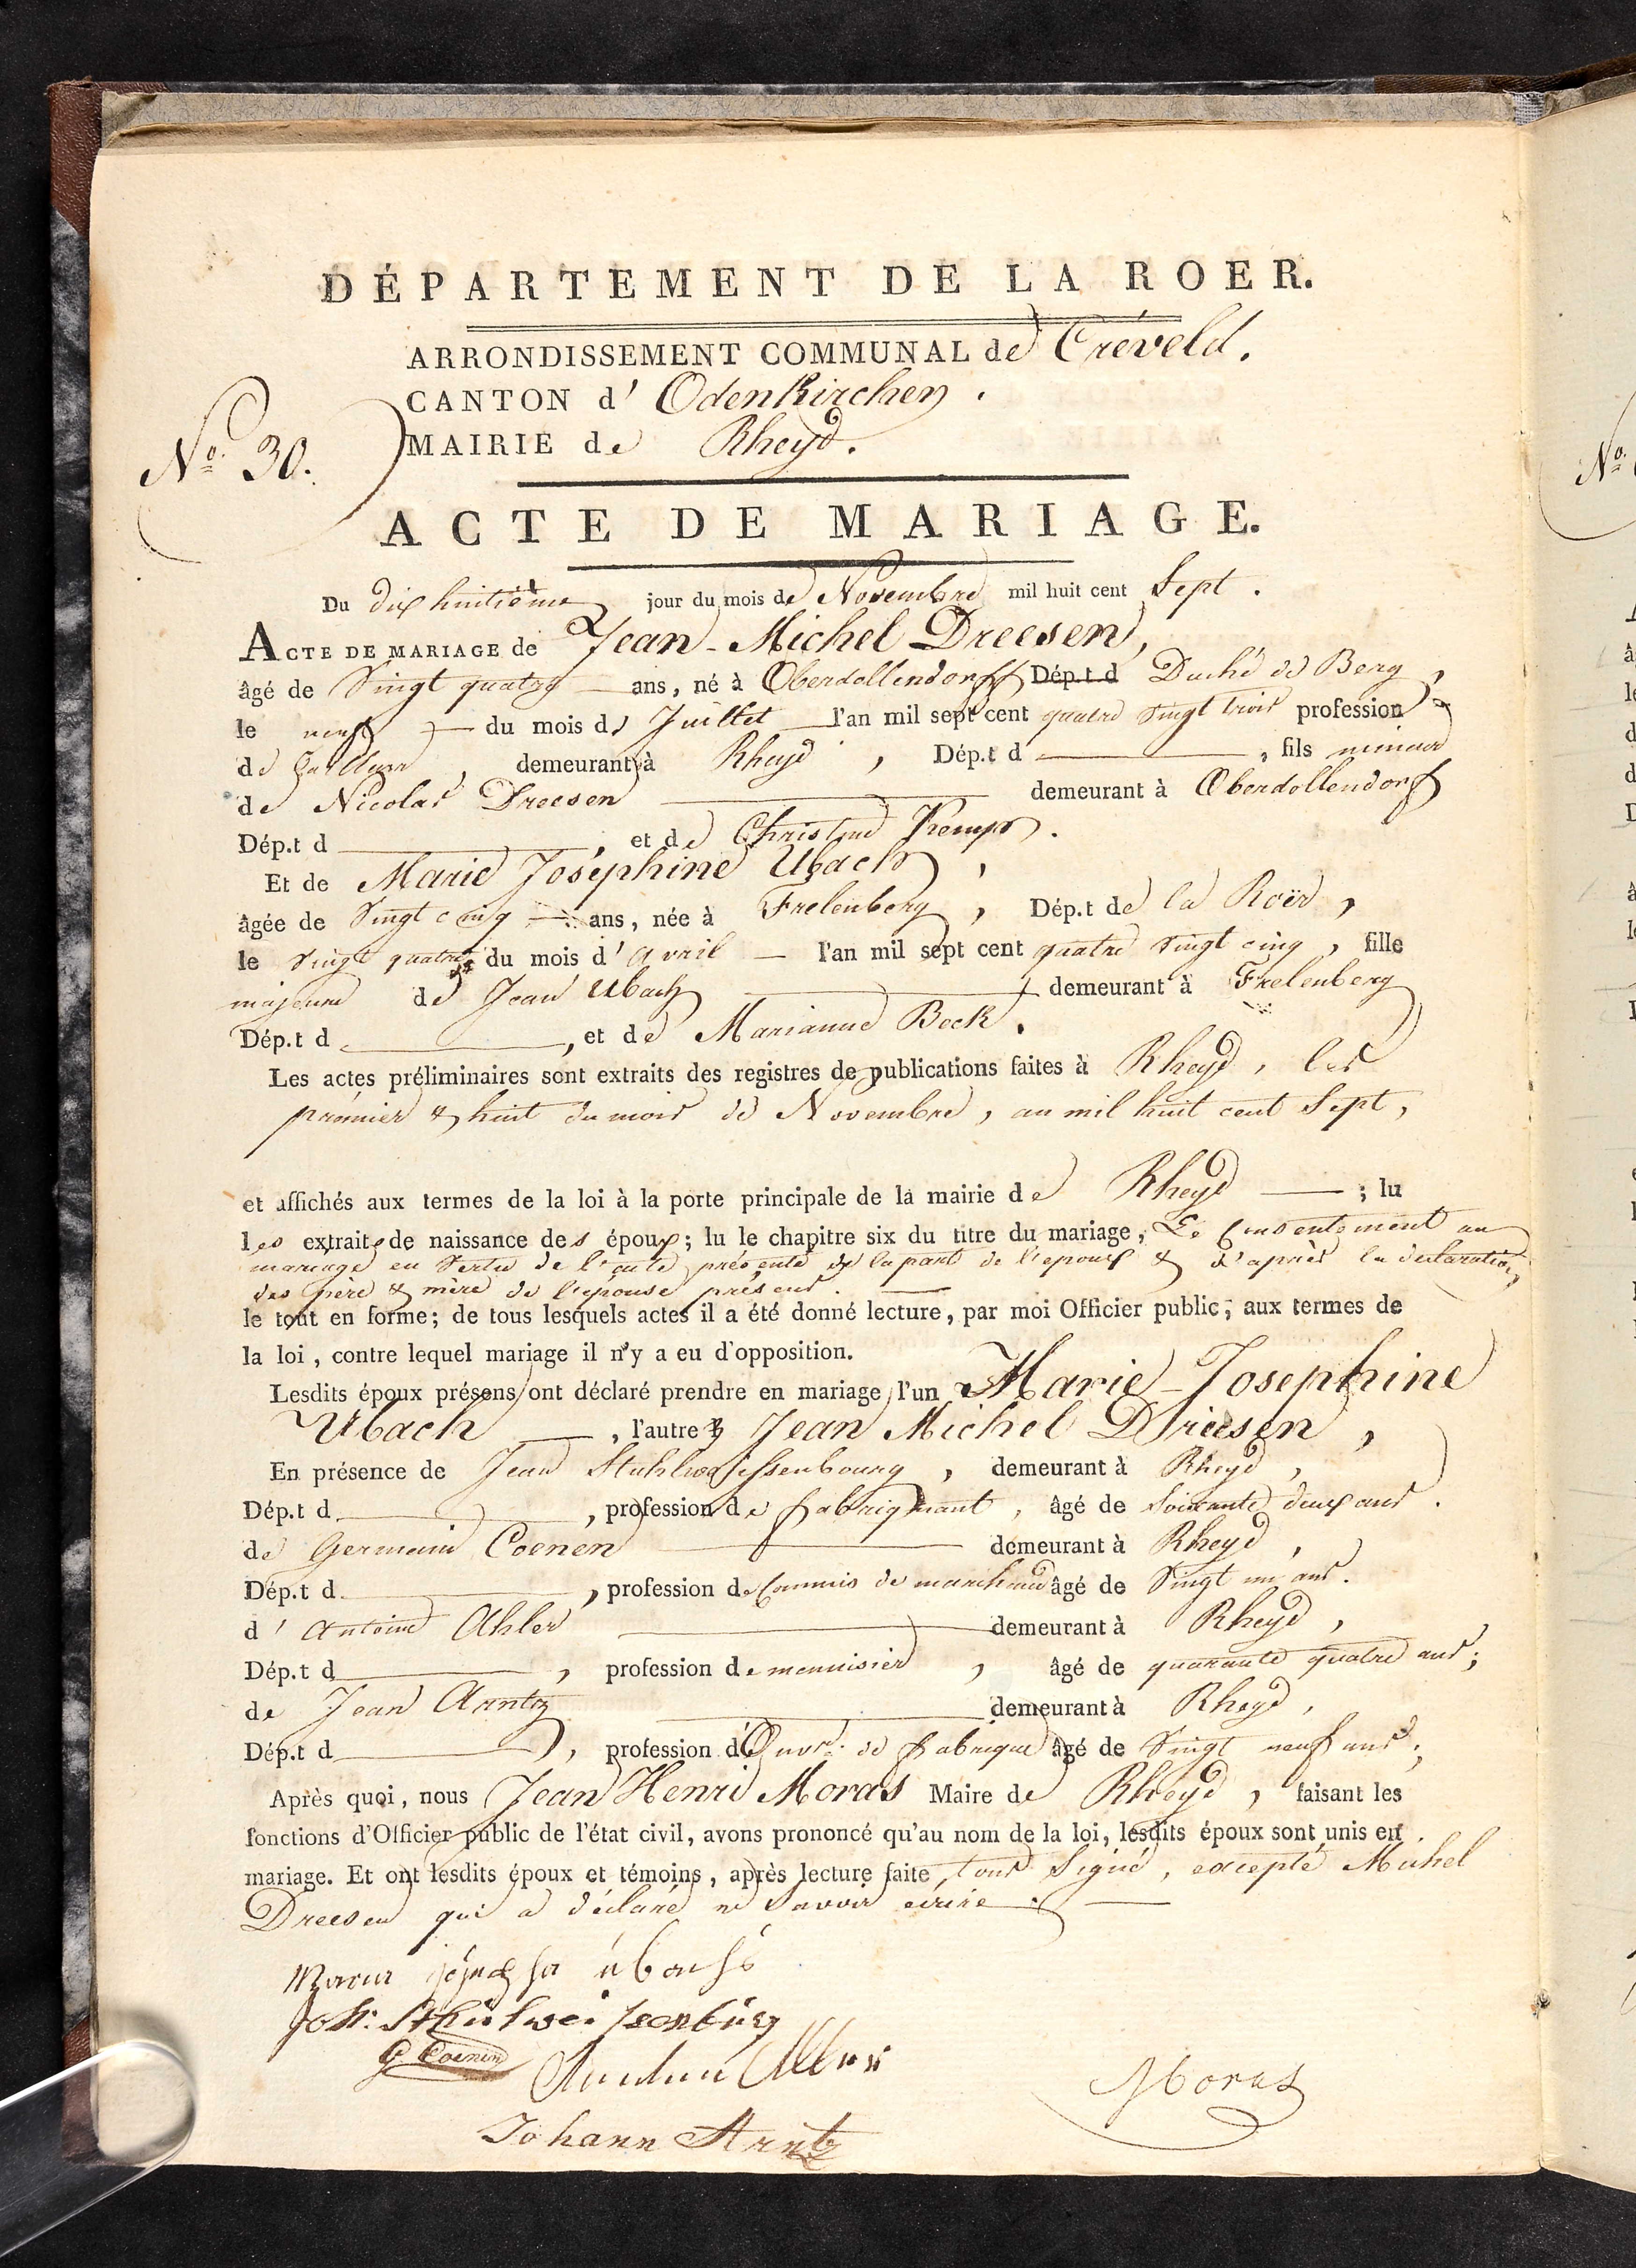 DÉPARTEMENT DE LA ROER.
ARRONDISSEMENT COMMUNAL de Créveld.
CANTON d' Odenkirchen.
MAIRIE de Rheyd.
No. 30.
ACTE DE MARIAGE.
Du dix huitième jour du mois de Novembre mil huit cent Sept.
ACTE DE MARIAGE de Jean-Michel Dreesen,
âgé de Vingt quatre ans, né à Oberdollendorff Dép.t d Duché de Berg,
le neuf du mois de Juillet l'an mil sept cent quatre Vingt trois profession
de tailleur, demeurant à Rheyd, Dép.t d , fils mineur
de Nicolas Dreesen demeurant à Oberdollendorf
Dép.t d , et de Christine Kemp.
Et de Marie Joséphine Ubach,
âgée de Vingt cinq ans, née à Frelenberg, Dép.t de la Roër,
le Vingt quatre du mois d'avril l'an mil sept cent quatre Vingt cinq, fille
majeure de Jean Ubach demeurant à Frelenberg
Dép.t d , et de Marianne Beck.
Les actes préliminaires sont extraits des registres de publications faites à Rheyd, les
prémier & huit du mois de Novembre, an mil huit cent Sept,
et affichés aux termes de la loi à la porte principale de la mairie de Rheyd ; lu
les extraits de naissance des époux; lu le chapitre six du titre du mariage, Le Consentement au
mariage en Vertu de l'acte présenté de la part de l'epoux & d'après la declaration
des père & mère de l'épouse présent.
le tout en forme; de tous lesquels actes il a été donné lecture, par moi Officier public, aux termes de
la loi, contre lequel mariage il n'y a eu d'opposition.
Lesdits époux présens ont déclaré prendre en mariage, l'un Marie-Josephine
Ubach, l'autre Jean Michel Driesen,
En présence de Jean Stuhlweissenbourg, demeurant à Rheyd,
Dép.t d , profession de fabriquant, âgé de Soixante deux ans.
de Germain Coenen demeurant à Rheyd,
Dép.t d , profession de Commis de marchand âgé de Vingt un ans.
d'Antoine Ahler demeurant à Rheyd,
Dép.t d , profession de menuisier, âgé de quarante quatre ans;
de Jean Arntz demeurant à Rheyd,
Dép.t d , profession d'Ouvr. de fabrique âgé de Vingt neuf ans;
Après quoi, nous Jean Henri Moras Maire de Rheyd, faisant les
fonctions d'Officier public de l'état civil, avons prononcé qu'au nom de la loi, lesdits époux sont unis en
mariage. Et ont lesdits époux et témoins, après lecture faite, tous Signé, excepté Michel
Dreesen qui a déclaré ne Savoir ecrire.
Joh: Sthulweissenburg
G Coenen
Johann Arntz
Moras
No